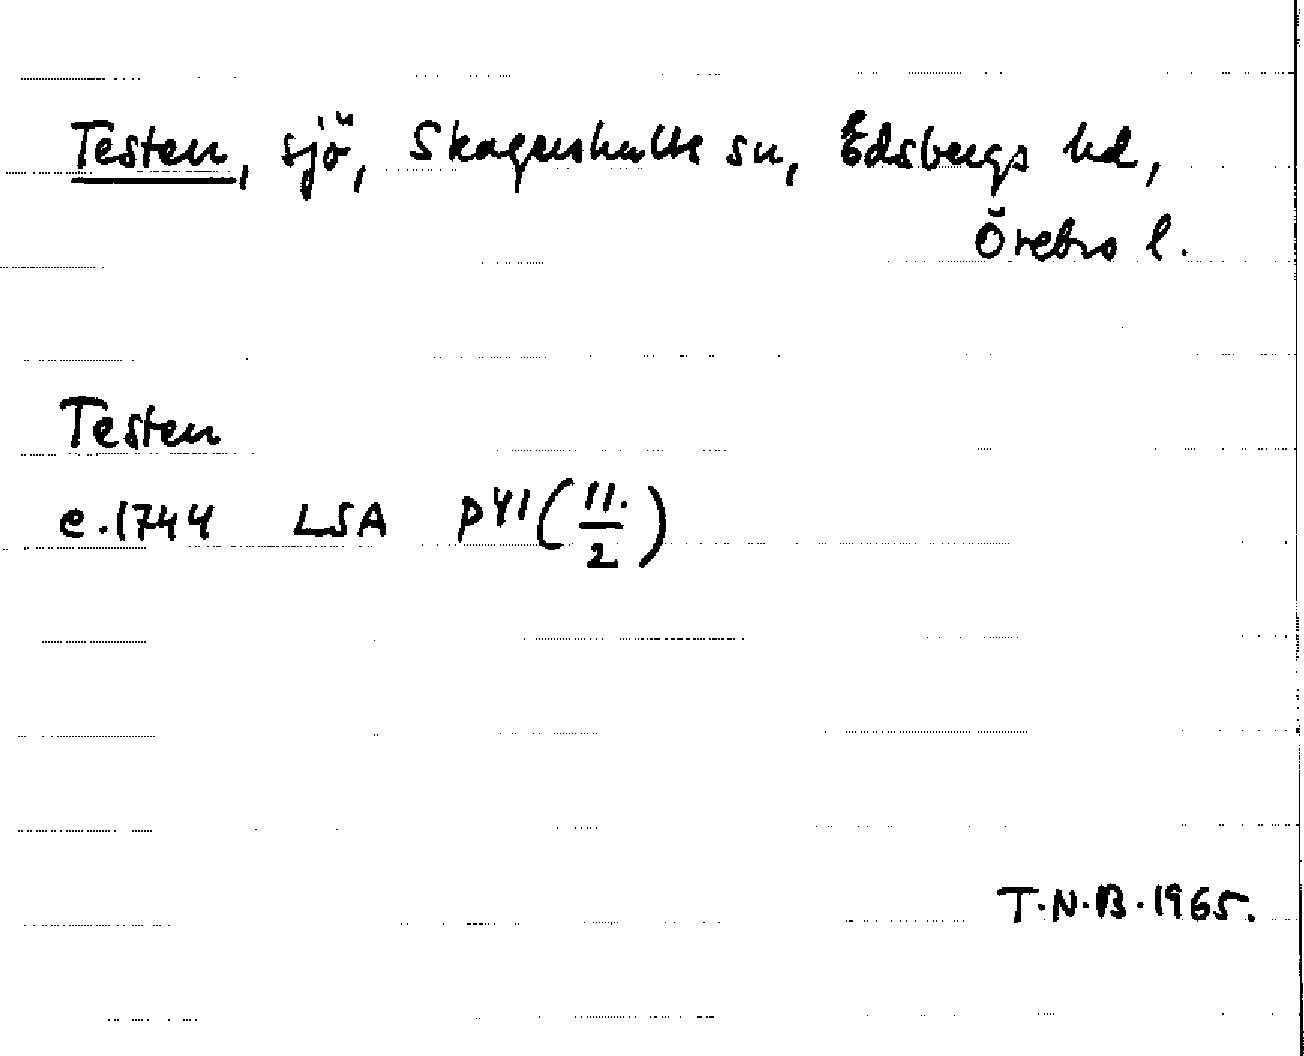 Testen, sjö, Skagershults sn, Edsbergs hd,
Örebro l.
Testen
c.1744 LSA P41(11./2)
T.N.B.1965.